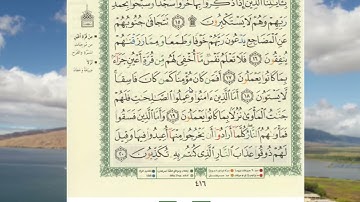 بِـَٔايَـٰتِنَا ٱلَّذِينَ إِذَا ذُكِّرُوا۟ بِهَا خَرُّوا۟ سُجَّدًا وَسَبَّحُوا۟ بِحَمْدِ
رَبِّهِمْ وَهُمْ لَا يَسْتَكْبِرُونَ ۩ ١٥ تَتَجَافَىٰ جُنُوبُهُمْ
عَنِ ٱلْمَضَاجِعِ يَدْعُونَ رَبَّهُمْ خَوْفًا وَطَمَعًا وَمِمَّا رَزَقْنَـٰهُمْ
يُنفِقُونَ ١٦ فَلَا تَعْلَمُ نَفْسٌ مَّآ أُخْفِىَ لَهُم مِّن قُرَّةِ أَعْيُنٍ جَزَآءًۢ
بِمَا كَانُوا۟ يَعْمَلُونَ ١٧ أَفَمَن كَانَ مُؤْمِنًا كَمَن كَانَ فَاسِقًا ۚ
لَّا يَسْتَوُۥنَ ١٨ أَمَّا ٱلَّذِينَ ءَامَنُوا۟ وَعَمِلُوا۟ ٱلصَّـٰلِحَـٰتِ فَلَهُمْ
جَنَّـٰتُ ٱلْمَأْوَىٰ نُزُلًۢا بِمَا كَانُوا۟ يَعْمَلُونَ ١٩ وَأَمَّا ٱلَّذِينَ فَسَقُوا۟
فَمَأْوَىٰهُمُ ٱلنَّارُ ۖ كُلَّمَآ أَرَادُوٓا۟ أَن يَخْرُجُوا۟ مِنْهَآ أُعِيدُوا۟ فِيهَا وَقِيلَ
لَهُمْ ذُوقُوا۟ عَذَابَ ٱلنَّارِ ٱلَّذِى كُنتُم بِهِۦ تُكَذِّبُونَ ٢٠
٤١٦